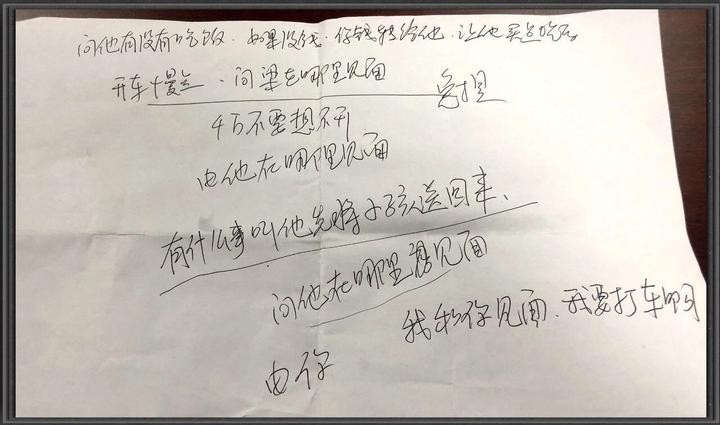 问他有没有吃饭．如果没钱．你钱转给他．让他买点吃的
开车慢点．问梁在哪里见面
千万不要想不开
由他在哪里见面
有什么事叫他先将小孩送回来、
问他在哪里见面
我和你见面．我要打车的
由你